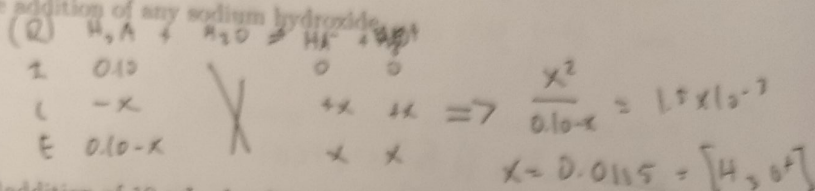 addition of any sodium hydroxide
(R) H₂A + H₂O ⇌ HA⁻ +
I 0.10 0 0
C -x +x +x => x²/0.10-x = 1.5x10⁻³
E 0.10-x x x
x = 0.0115 = [H₃O⁺]